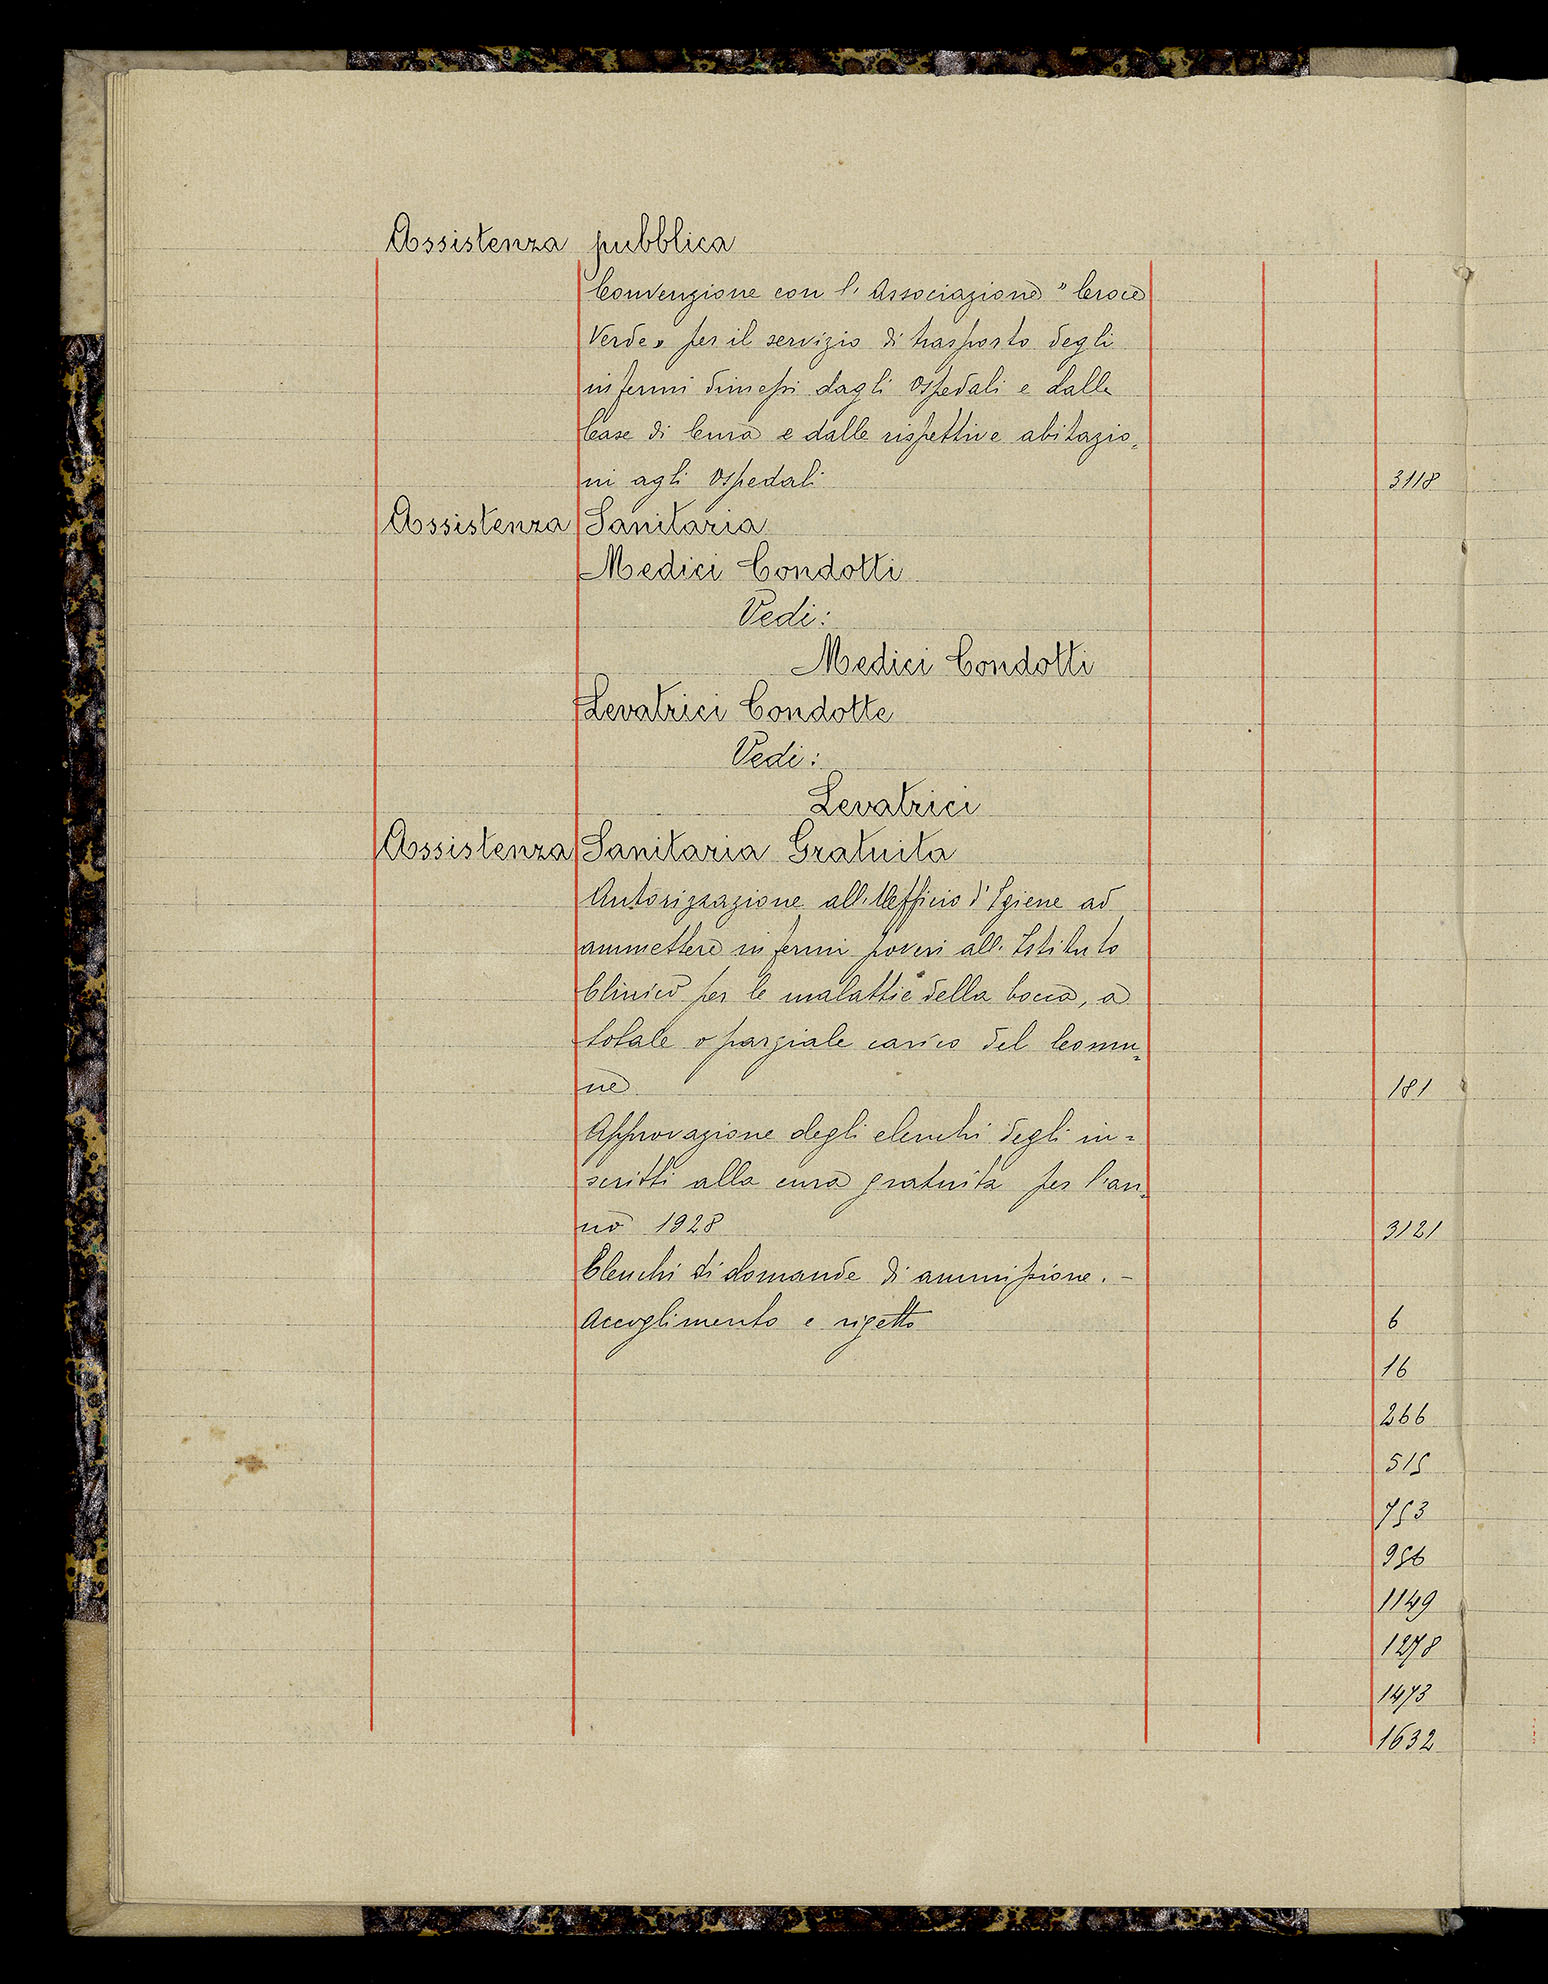 Assistenza pubblica
Convenzione con l'Associazione "Croce
Verde" per il servizio di trasporto degli
infermi dimessi dagli Ospedali e dalle
Case di Cura e dalle rispettive abitazio=
ni agli Ospedali 3118
Assistenza Sanitaria
Medici Condotti
Vedi:
Medici Condotti
Levatrici Condotte
Vedi:
Levatrici
Assistenza Sanitaria Gratuita
Autorizzazione all'Ufficio d'Igiene ad
ammettere infermi poveri all'Istituto
Clinico per le malattie della bocca, a
totale o parziale carico del Comu=
ne 181
Approvazione degli elenchi degli in=
scritti alla cura gratuita per l'an=
no 1928 3121
Elenchi di domande di ammissione. -
Accoglimento e rigetto 6
16
266
515
753
956
1149
1278
1473
1632